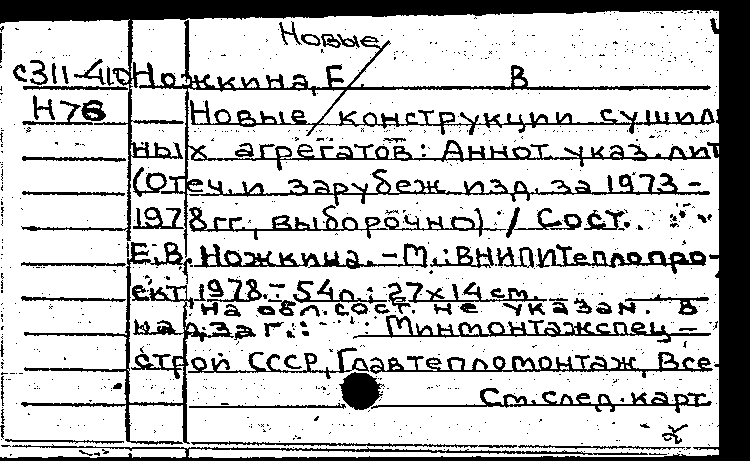 Новые
с311-410 Ножкина, Е. В
Н76 Новые конструкции сушил
ных агрегатов: Аннот. указ. лит
(Отеч. и зарубеж изд. за 1973 -
1978гг., выборочно) / Сост.
Е.В. Ножкина. - М.: ВНИПИТеплопро-
ект 1978. - 54л.; 27х14 см.
На обл. сост. не указан. В
над заг.: Минмонтажспец-
строй СССР, Главтепломонтаж, Все-
См. след. карт.